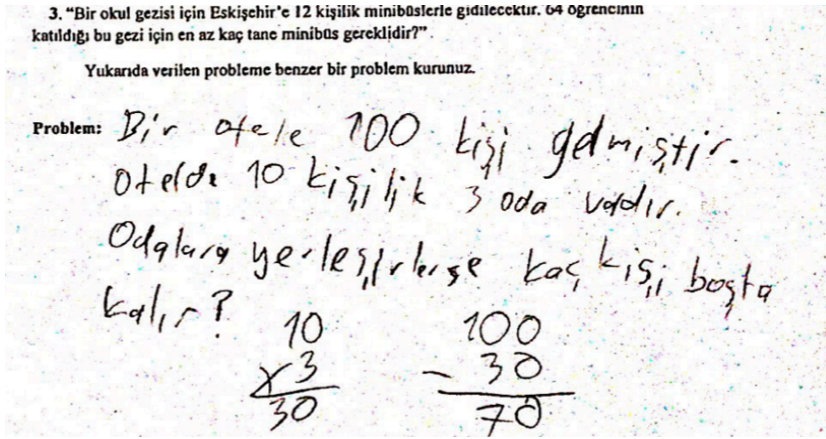 3. “Bir okul gezisi için Eskişehir’e 12 kişilik minibüslerle gidilecektir. 64 öğrencinin
katıldığı bu gezi için en az kaç tane minibüs gereklidir?”
Yukarıda verilen probleme benzer bir problem kurunuz.
Problem: Bir otele 100 kişi gelmiştir.
Otelde 10 kişilik 3 oda vardır.
Odalara yerleşirlerse kaç kişi boşta
kalır?
10 100
x 3 - 30
30 70